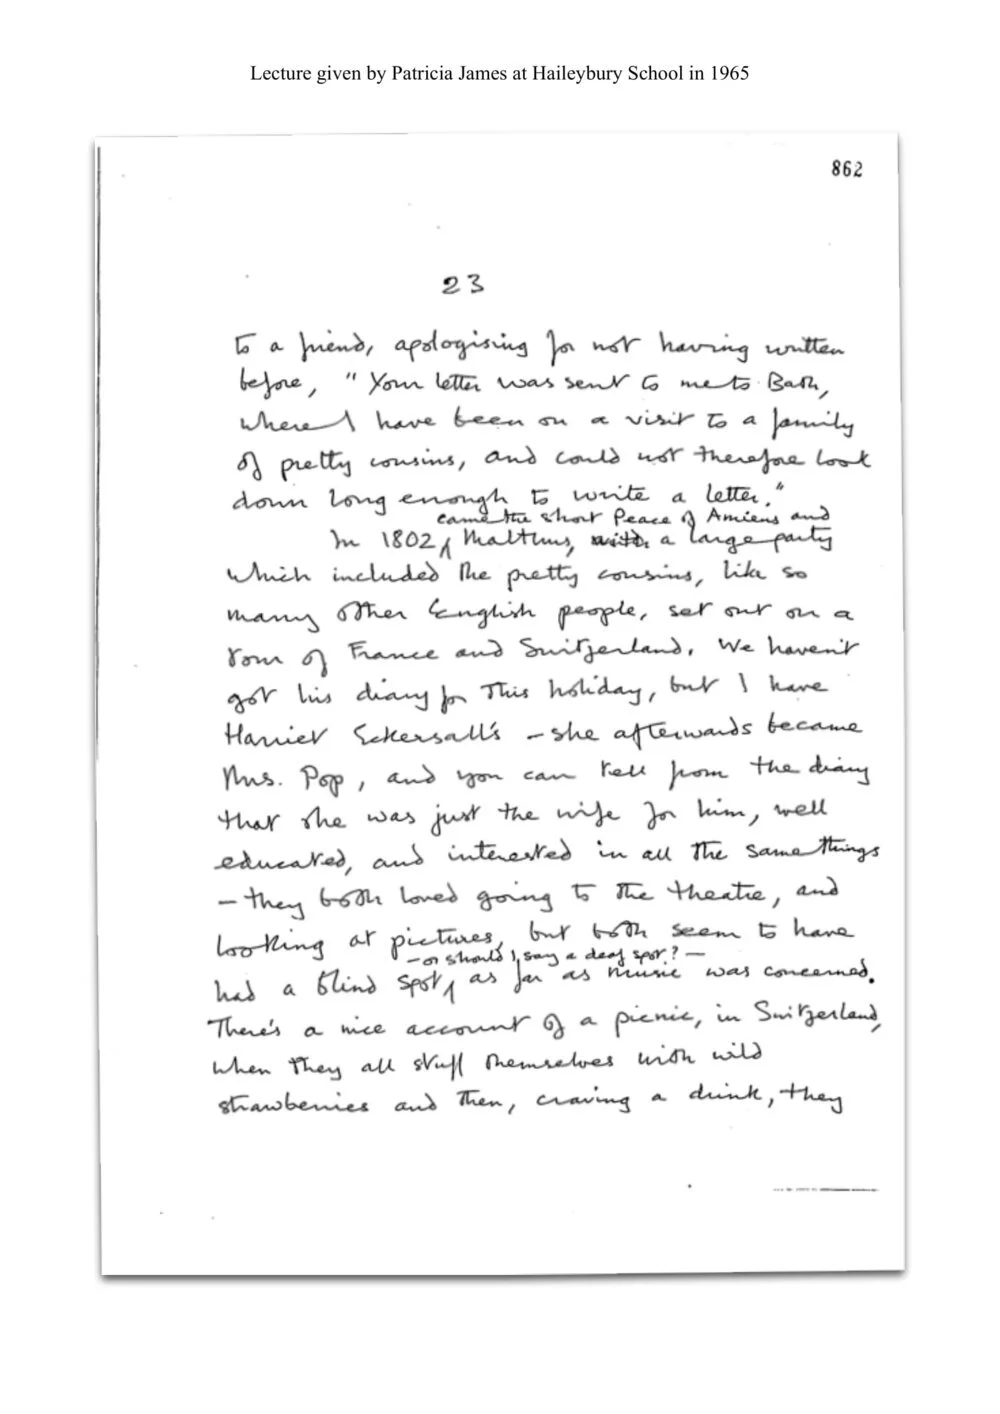 Lecture given by Patricia James at Haileybury School in 1965
862
23
to a friend, apologising for not having written
before, "Your letter was sent to me to Bath,
where I have been on a visit to a family
of pretty cousins, and could not therefore look
down long enough to write a letter."
came the short Peace of Amiens and
In 1802, Malthus, with a large party
which included the pretty cousins, like so
many other English people, set out on a
tour of France and Switzerland. We haven't
got his diary for this holiday, but I have
Harriet Eckersall's – she afterwards became
Mrs. Pop, and you can tell from the diary
that she was just the wife for him, well
educated, and interested in all the same things
– they both loved going to the theatre, and
looking at pictures, but both seem to have
– or should I say a deaf spot? –
had a blind spot, as far as music was concerned.
There's a nice account of a picnic, in Switzerland,
when they all stuff themselves with wild
strawberries and then, craving a drink, they